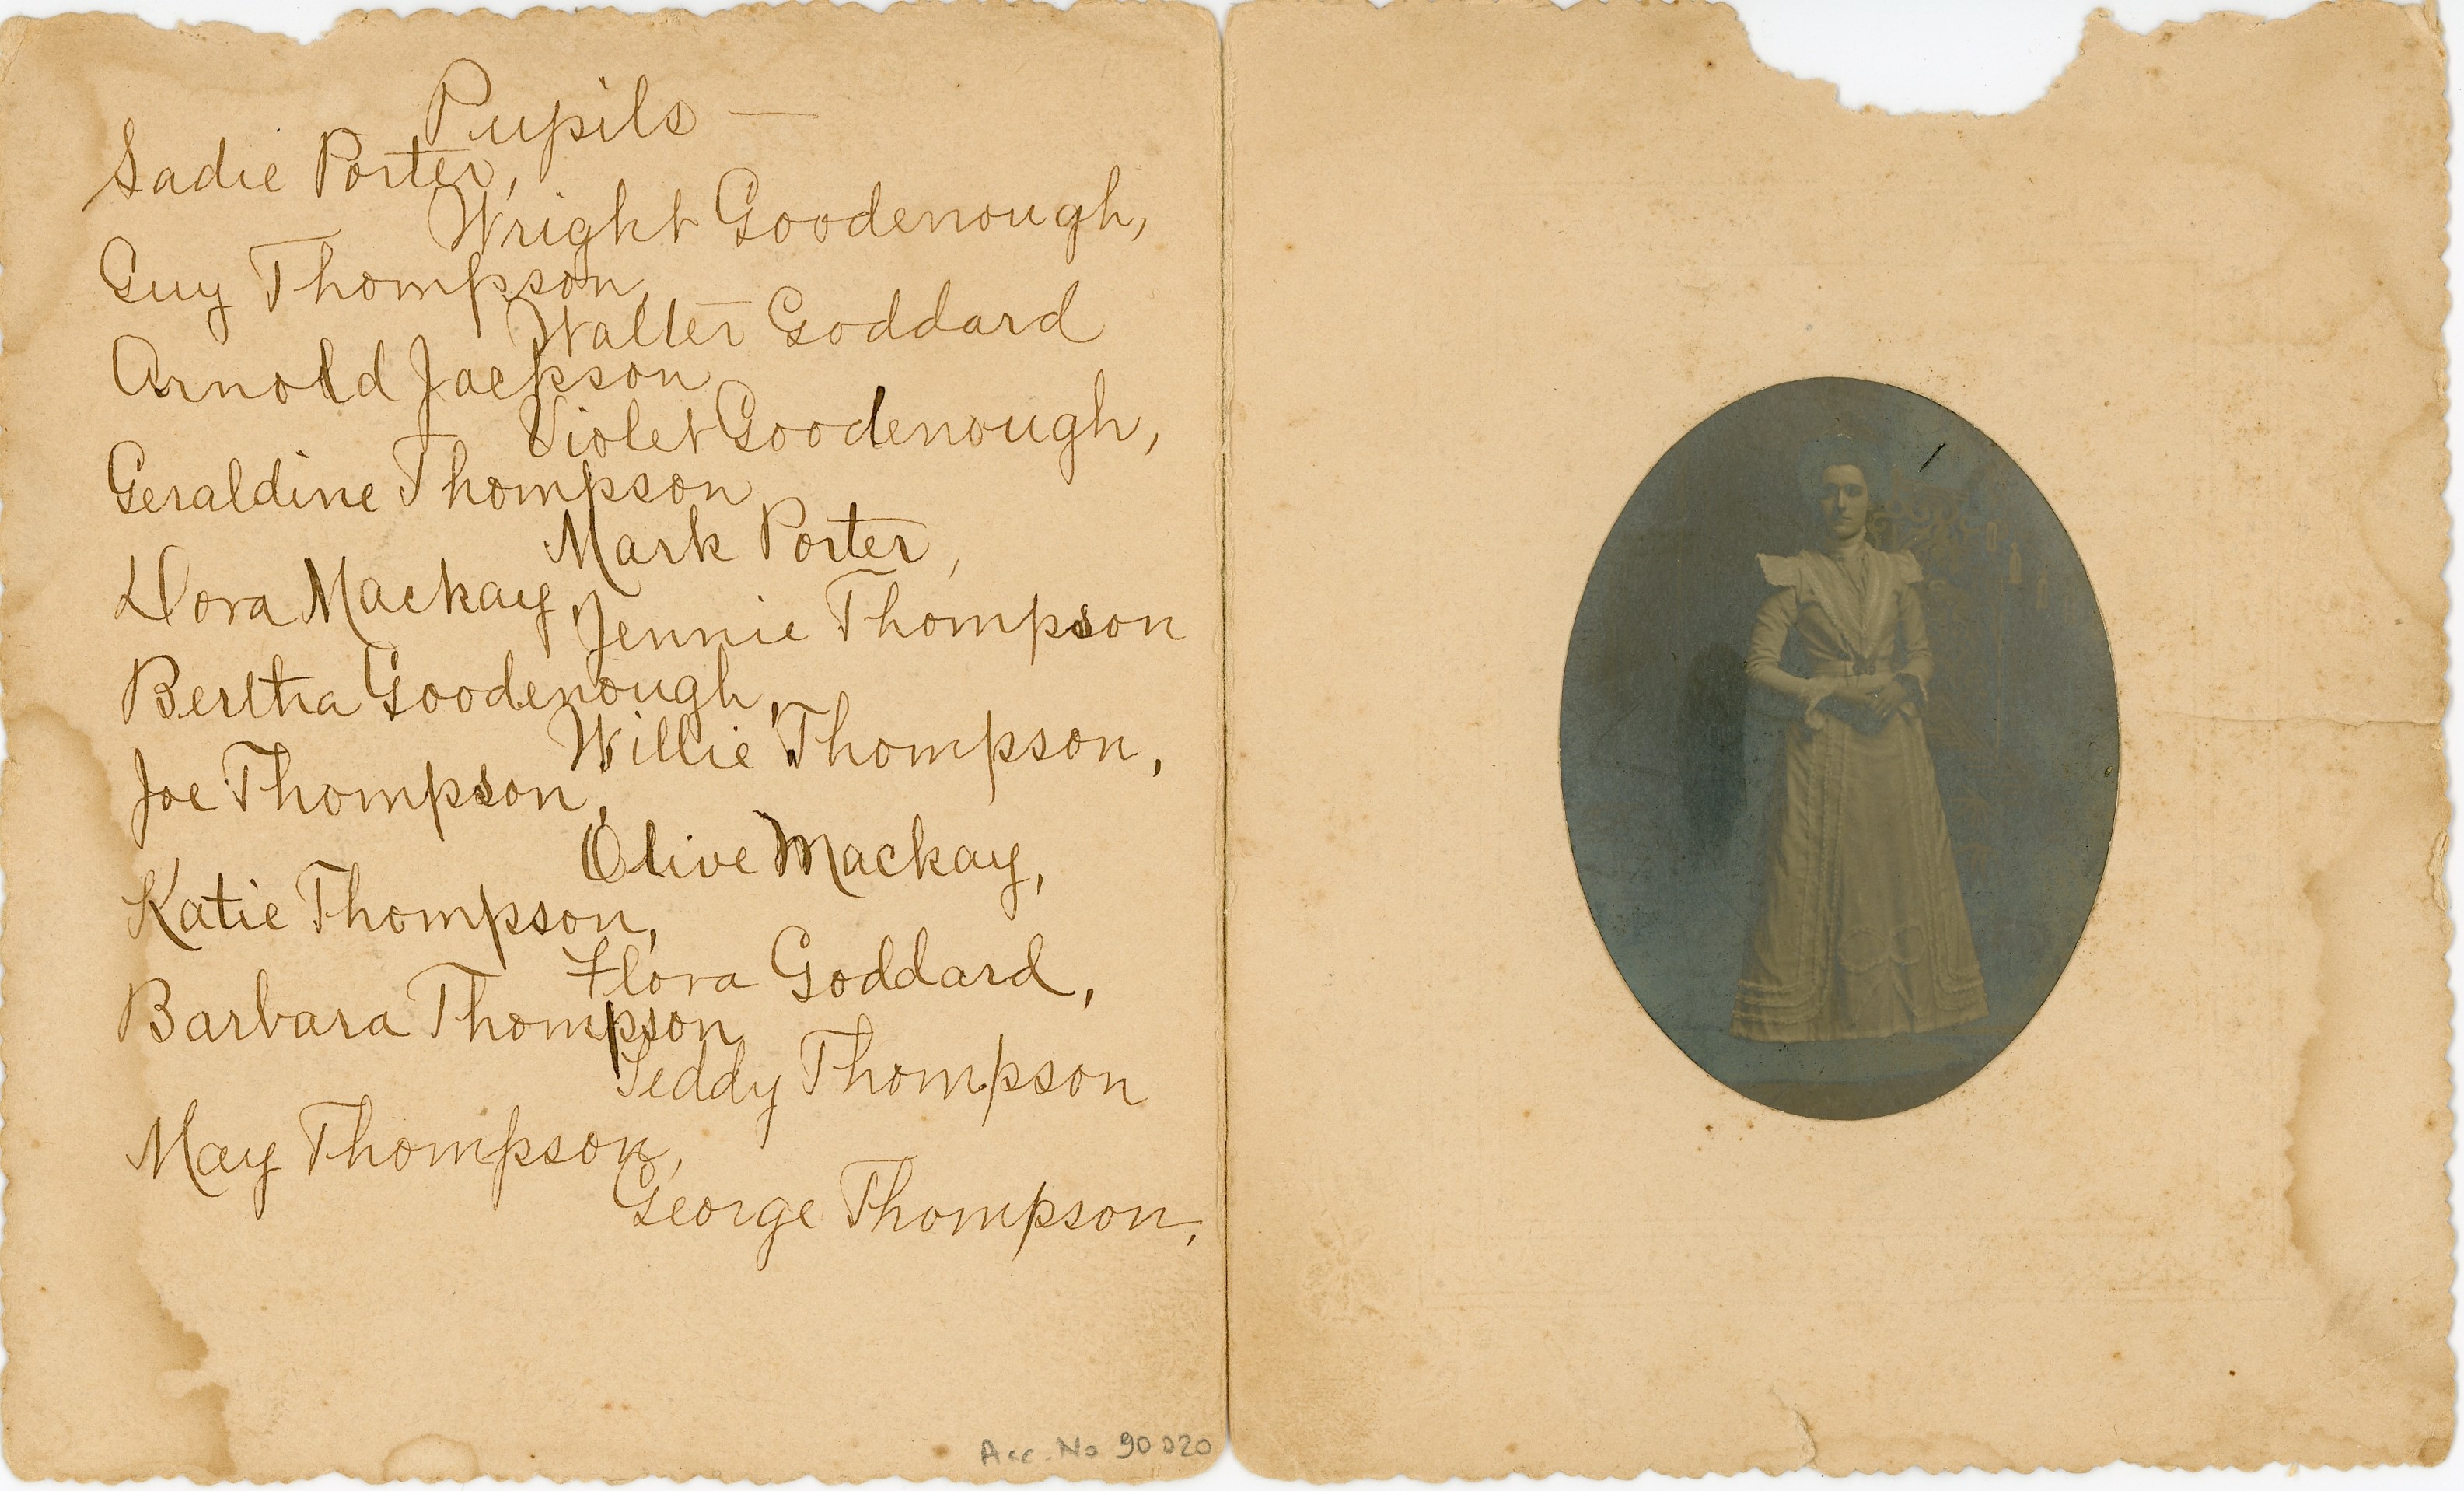 Pupils —
Sadie Porter,
Wright Goodenough,
Guy Thompson,
Walter Goddard
Arnold Jackson
Violet Goodenough,
Geraldine Thompson
Mark Porter,
Dora Mackay,
Jennie Thompson
Bertha Goodenough,
Willie Thompson,
Joe Thompson,
Olive Mackay,
Katie Thompson,
Flora Goddard,
Barbara Thompson
Teddy Thompson
May Thompson,
George Thompson,
Acc. No 90020